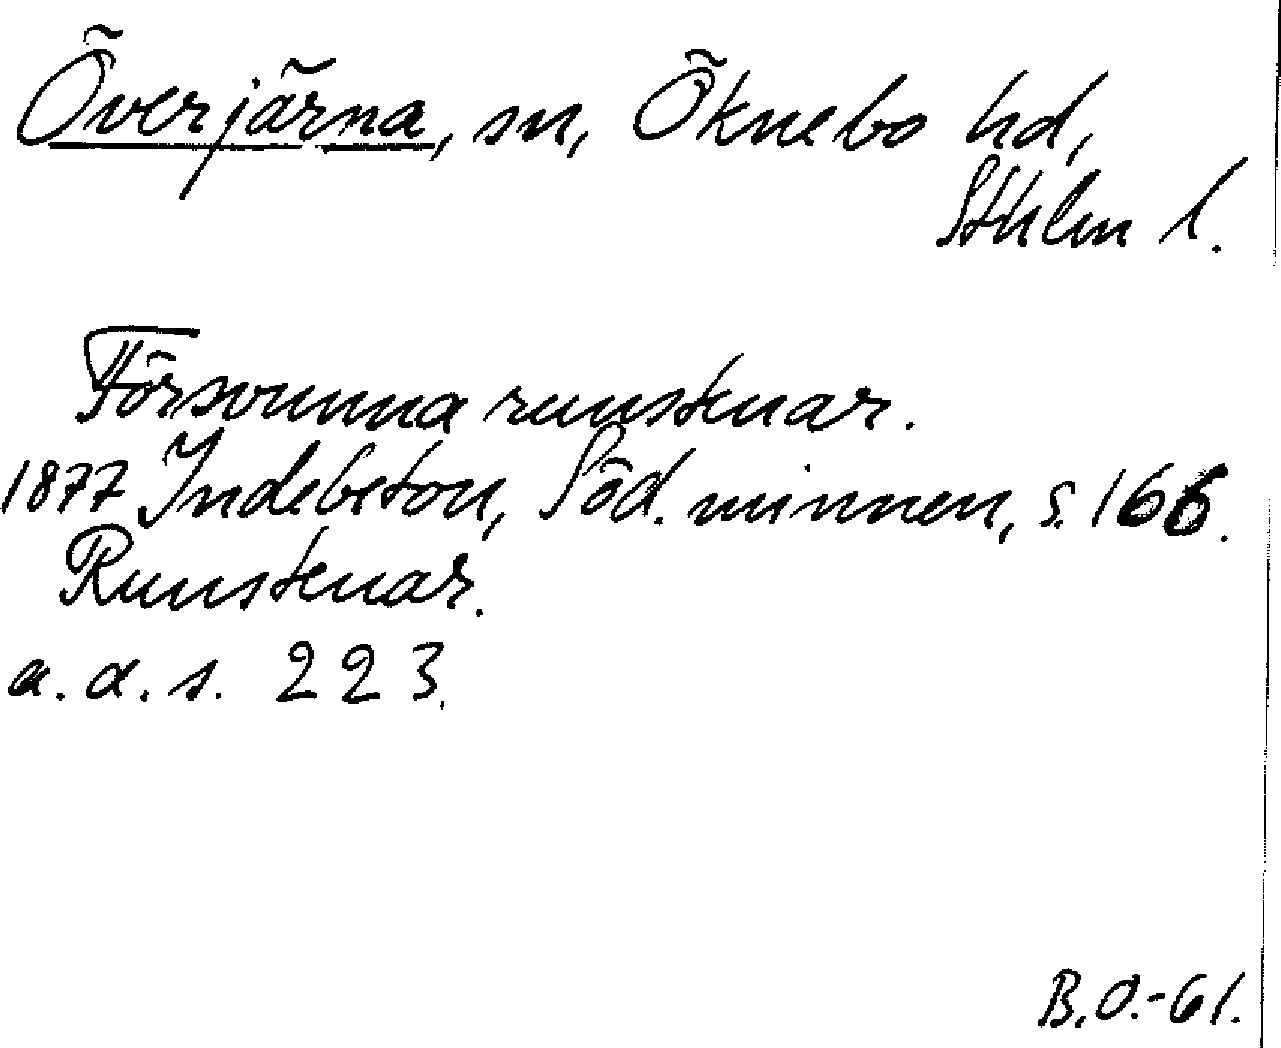 Överjärna, sn, Öknebo hd,
Sthlm l.
Försvunna runstenar.
1877 Indebetou, Söd. minnen, s. 166.
Runstenar.
a. a. s. 223.
B.O.-61.